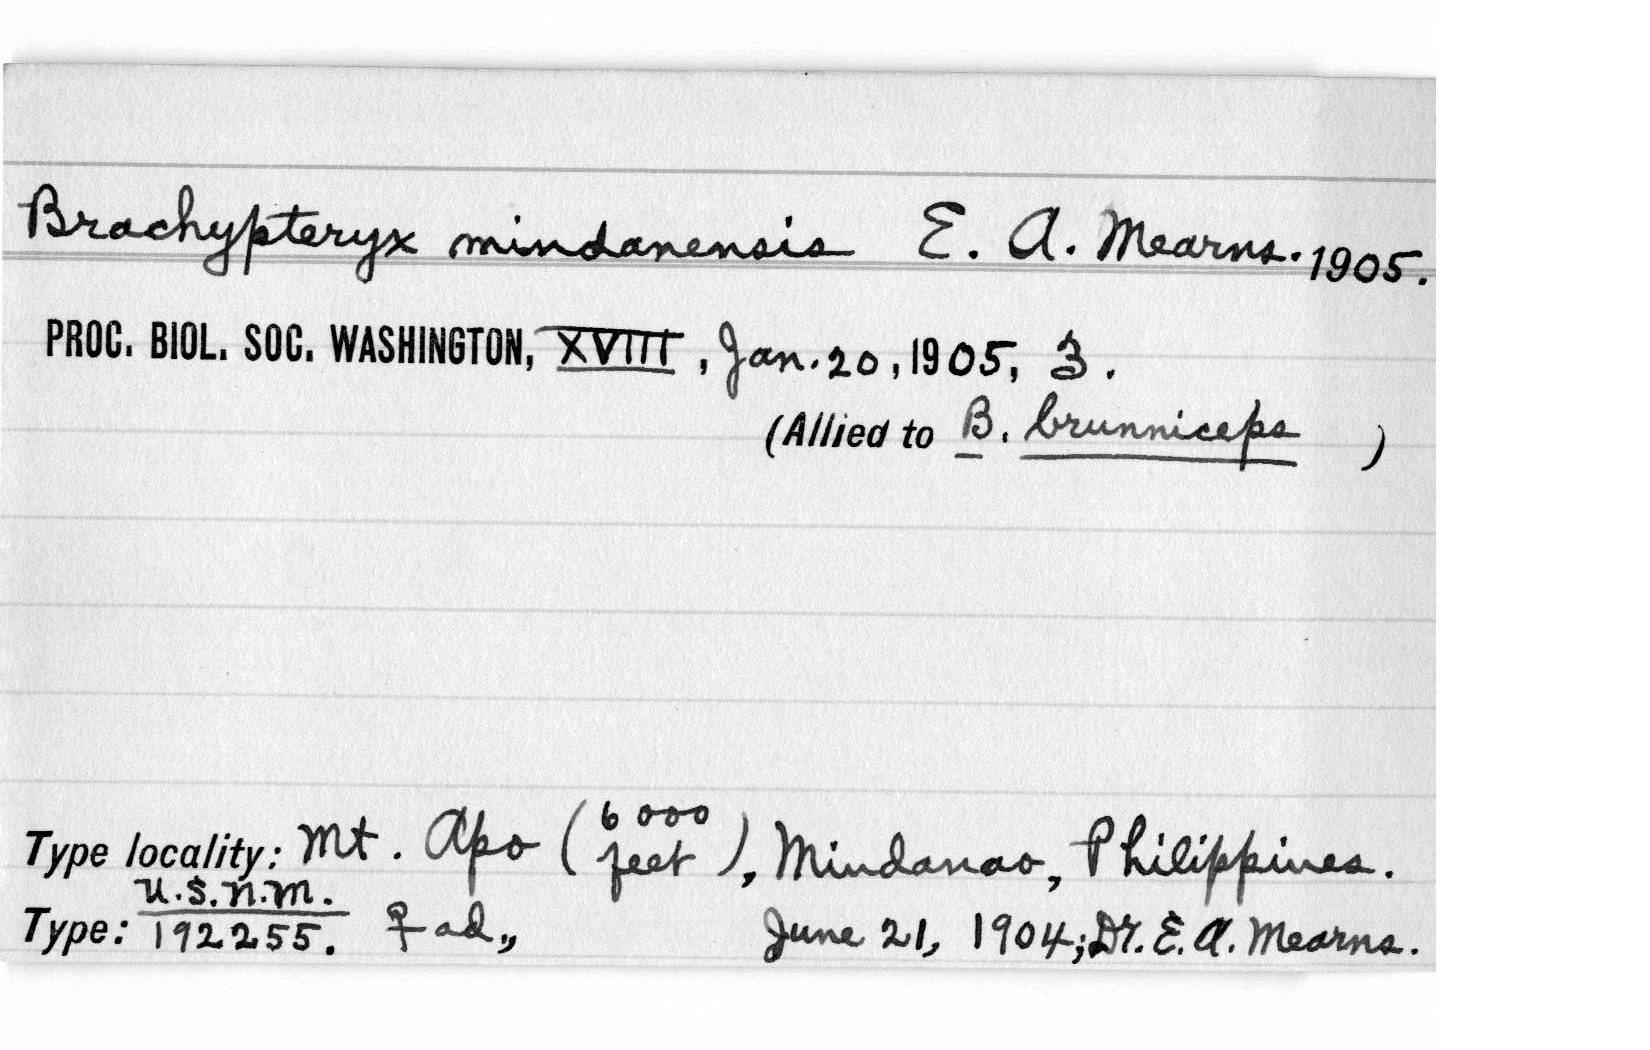 Brachypteryx mindanensis E. A. Mearns. 1905.
PROC. BIOL. SOC. WASHINGTON, XVIII, Jan. 20, 1905, 3.
(Allied to B. brunniceps )
Type locality: Mt. Apo (6000 feet), Mindanao, Philippines.
Type: U.S.N.M. 192255. ♀ ad., June 21, 1904; Dr. E. A. Mearns.